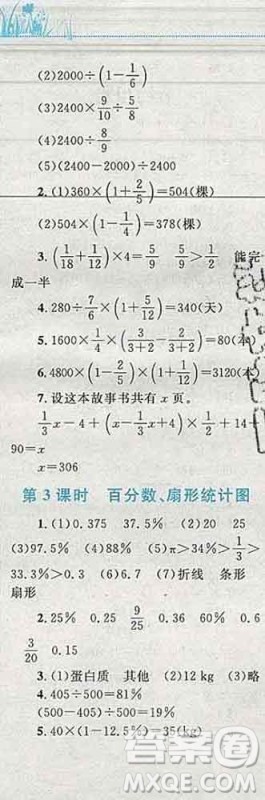 (2)2000÷(1-1/6)
(3)2400×9/10÷5/8
(4)2400÷5/8
(5)(2400-2000)÷2400
2.(1)360×(1+2/5)=504(棵)
(2)504×(1-1/4)=378(棵)
3.(1/18+1/12)×4=5/9 5/9>1/2 能完
成一半
4.280÷7/6×(1+5/12)=340(天)
5.1600×1/4×(3/(3+2)-2/(3+2))=80(本)
6.4800×(1-2/5)×(1+1/12)=3120(本)
7.设这本故事书共有 x 页。
1/3x-4+(1/3x-4)×(1+1/4)+
90=x
x=306
第 3 课时 百分数、扇形统计图
1.(1)0.375 37.5% (2)20 25
(3)97.5% (4)88% (5)π>34%>1/3>
33.3%>0.3 (6)6.7 (7)折线 条形
扇形
2.25% 0.25 9/25 0.36 60% 0.6
3/20 0.15
3.(1)蛋白质 其他 (2)12 kg (3)略
4.405÷500=81%
(500-405)÷500=19%
5.40×(1-12.5%)=35(kg)
答案圈
MXQE.COM